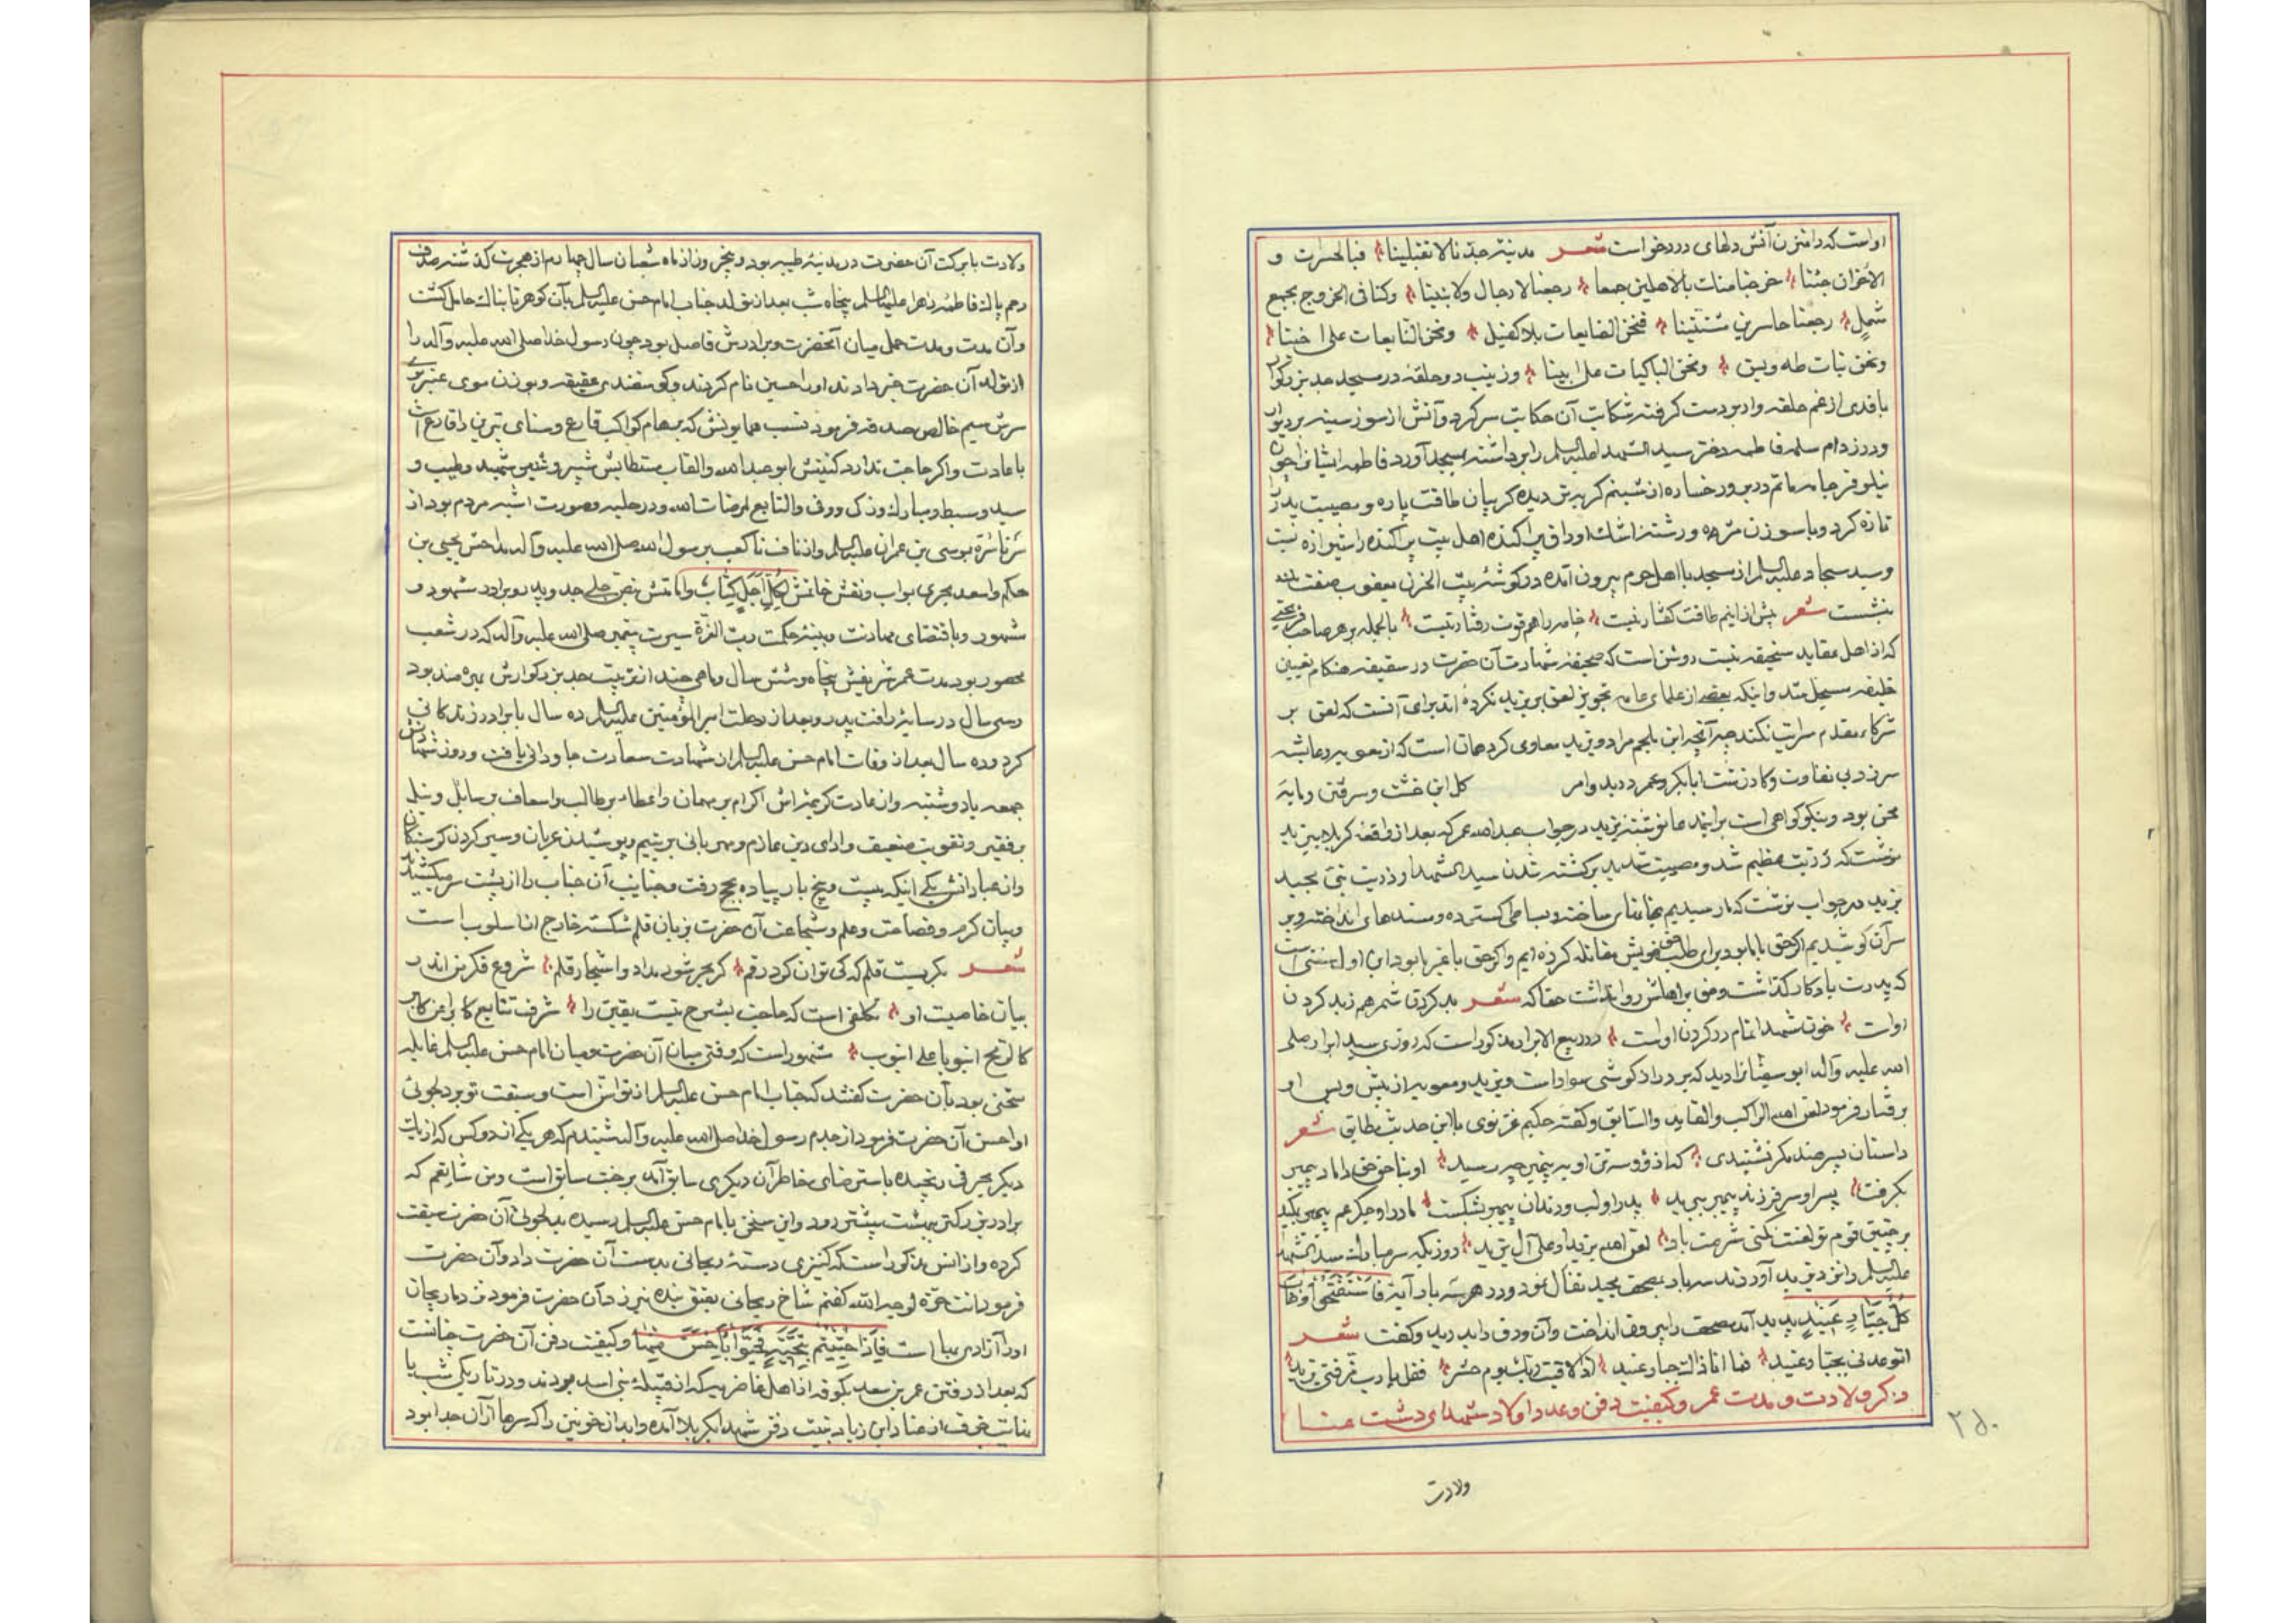 او است که دامن زن آتش دلهای دردخواست شعر مدینة جدنا لا تقبلینا فبالحسرات و
الاحزان جئنا خرجنا منک بالاهلین جمعا رجعنا لا رجال ولا بنینا وکنا فی الخروج بجمع
شمل رجعنا حاسرین فنحن الضایعات بلا کفیل ونحن النایعات علی اخینا
ونحن بنات طه ویس ونحن الباکیات علی ابینا وزینب دو حلقه در مسجد جد بزرکوار
با قدی از غم حلقه وار بدست کرفته شکایت آن حکایت سر کرد وآتش از سوز سینه بر دیوار
ودر زد ام سلمه فاطمه دختر سید الشهدا علیه السلم را برداشته بمسجد آورد فاطمه ایشانرا چون
نیلوفر جامه ماتم در بر ورخساره از شبنم کریه تر دیده کریبان طاقت پاره ومصیبت پدر را
تازه کرد وبا سوزن مژه ورشته اشک اوراق پراکنده اهل بیت پراکنده را شیرازه بست
وسید سجاد علیه السلم از مسجد با اهل حرم بیرون آمده در کوشه بیت الحزن یعقوب صفت
بنشست شعر بیش از اینم طاقت کفتار نیست خامه را هم قوت رفتار نیست بالجمله بر هر صاحب
که از اهل عقاید سنجیقه نیست روشن است که صحیفه شهادت آن حضرت در سقیفه هنکام تعیین
خلیفه مسجل شد واینکه بعضی از علمای عامه تجویز لعن بر یزید نکرده اند برای آنست که لعن بر
شرکاء مقدم سرایت نکند چه آنچه ابن ملجم مراد ویزید معاوی کرد همان است که از عمر بر وعایشه
سر زد بی تفاوت وکار زتست ابابکر وعمر ددید وامر کل این خشت وسرقتن ومایه
محن بود ونیکو کواهی است براینمدعا نوشته یزید در جواب عبدالله عمر که بعد از واقعه کربلا بیزید
نوشت که رزیت عظیم شد ومصیبت شدید بر کشته شدن سید الشهدا وذریت نبی مجید
یزید در جواب نوشت که ما رسیدیم بخانهای ساخته وبساطی کسترده ومسندهای انداخته وبر
سر آن کوشدیم اکر حق با ما بود برای طلب حق خویش مقاتله کرده ایم واکر حق با غیر ما بود این اول سنتی است
که پدرت یادکار کذاشت وحق بر اهلش روا نداشت حقا که شعر بد کردن شمر هم زبد کردن
اوات خون شهدا تمام در کردن اوست در ربیع الابرار مذکور است که روزی سید ابرار صلی
الله علیه وآله ابوسفیانرا دید که بر دراز کوشی سوار است ویزید ومعویه از پیش وپس او
برفتار فرمود لعن الله الراکب والقاید والسایق وکفته حکیم غزنوی با این حدیث مطابق شعر
داستان پسر هند مکر نشنیدی که از او وسه تن او به پیمبر چه رسید او بناحق حق داماد پیمبر
بکرفت پسر او سر فرزند پیمبر ببرید پدر او لب ودندان پیمبر بشکست مادر او جکر عم پیمبر بمکید
بر چنین قوم تو لعنت نکنی شرمت باد لعن الله یزیدا وعلی آل یزید روزیکه سر مبارک سید الشهدا
علیه السلم را نزد یزید آوردند سه بار بمصحف مجید تفال نمود ودر هر سه بار آیه فاستفتحوا وخاب
کل جبار عنید پدید آمد مصحف را بر وق انداخت وآن ورق دابد درید وکفت شعر
اتوعدنی بجبار عنید فها انا ذاک جبار عنید اذا لاقیت ربک یوم حشر فقل یا رب مزقنی یزید
ذکر ولادت ومدت عمر وکیفیت دفن وعدد اولاد شهدای دشت عنا
ولادت
۲۵۰
ولادت با برکت آن حضرت در مدینه طیبه بود وپنجروز از ماه شعبان سال چهارم از هجرت کذشته صدف
رحم پاک فاطمه زهرا علیها السلم پنجاه شب بعد از تولد جناب امام حسن علیه السلم بآن کوهر تابناک حامل کشت
وآن مدت ومدت حمل میان آنحضرت وبرادرش فاصل بود چون رسول خدا صلی الله علیه وآله را
از تولد آن حضرت خبر دادند اورا حسین نام کردند وکوسفندی عقیقه وبوزن موی عنبربوی
سرش سیم خالص صدقه فرمود نسب همایونش که برهام کواکب قارع وسنای نیرین را قارع است
با عادت واکر حاجت ندارد کنیتش ابو عبدالله والقاب مستطابش شبیر و شهید وطیب و
سید وسبط ومبارک وزکی ووفی والتابع لمرضات الله ودر حلیه وصورت اشبه مردم بود از
سر تا سره بموسی بن عمران علیه السلم واز ناف تا کعب برسول الله صلی الله علیه وآله مداحش یحیی بن
حکم واسعد هجری بواب ونقش خاتمش لکل اجل کتاب وامامتش بنص جلی جد وپدر وبرادر مشهود و
مشهور وباقتضای مهادنت مبینه حکمت رب العزة سیرت پیغمبر صلی الله علیه وآله که در شعب
محصور بود مدت عمر شریفش پنجاه وشش سال وماهی چند از تربیت جد بزرکوارش بهره مند بود
وسی سال در سایه رافت پدر وبعد از رحلت امیر المؤمنین علیه السلم ده سال با برادر زندکانی
کرد وده سال بعد از وفات امام حسن علیه السلم از شهادت سعادت جاودانی یافت وروز شهادتش
جمعه یا دوشنبه واز عادت کریمه اش اکرام بر مهمان واعطاء بر طالب واسعاف بر سایل ونیل
بر فقیر وتقویت ضعیف وادای دین غارم ومهربانی بر یتیم وپوشیدن عریان وسیر کردن کرسنکان
واز عباداتش یکی اینکه بیست وپنج بار پیاده بحج رفت وجنایب آن جناب را از پشت سر میکشیدند
وبیان کرم وفصاحت وعلم وشجاعت آن حضرت بزبان قلم شکسته خارج از اسلوب است
شعر بکریست قلم که کی توان کرد رقم کر بحر شود مداد واشجار قلم شروع فکر من اندر
بیان خاصیت او تکلفی است که حاجت بشرح نیست یقین را شرف تتابع کابرا عن کابر
کالرمح انبوبا علی انبوب مشهور است که وقتی میان آن حضرت ومیان امام حسن علیه السلم غایله
سخنی بود بآن حضرت کفتند که جناب امام حسن علیه السلم از تو اسن است وسبقت تو بر دلجوئی
او احسن آن حضرت فرمود از جدم رسول خدا صلی الله علیه وآله شنیدم که هر یکی از دو کس که از یک
دیکر بحرفی رنجیده باسترضای خاطر آن دیکری سابق آمد بر جنت سابق است ومن شایقم که
برادر بزرکتر ببهشت پیشتر رود واین سخن بامام حسن علیه السلم رسیده بدلجوئی آن حضرت سبقت
کرده واز انس مذکور است که کنیزی دسته ریحانی بدست آن حضرت داد وآن حضرت
فرمود انت حرة لوجه الله کفتم شاخ ریحانی بعتق بنده نیرزد آن حضرت فرمود
اورا آزادی بها است فاذا حییتم بتحیة فحیوا باحسن منها وکیفیت دفن آن حضرت چنانست
که بعد از رفتن عمر بن سعد بکوفه از اهل غاضریه که از قبیله بنی اسد بودند ودر تاریکی شب با
نهایت خوف از عناد ابن زیاد بنیت دفن شهدا بکربلا آمده وابدان خونین را که سرها از آن جدا بود